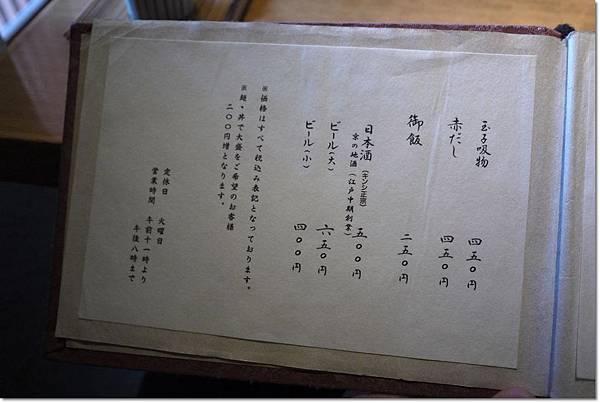 玉子吸物 四五〇円
赤だし 四五〇円
御飯 二五〇円
日本酒(キンシ正宗) 五〇〇円
京の地酒(江戸中期創業)
ビール(大) 六五〇円
ビール(小) 四〇〇円
※価格はすべて税込み表記となっております。
※麺・丼で大盛をご希望のお客様
二〇〇円増となります。
定休日 火曜日
営業時間 午前十一時より
午後八時まで